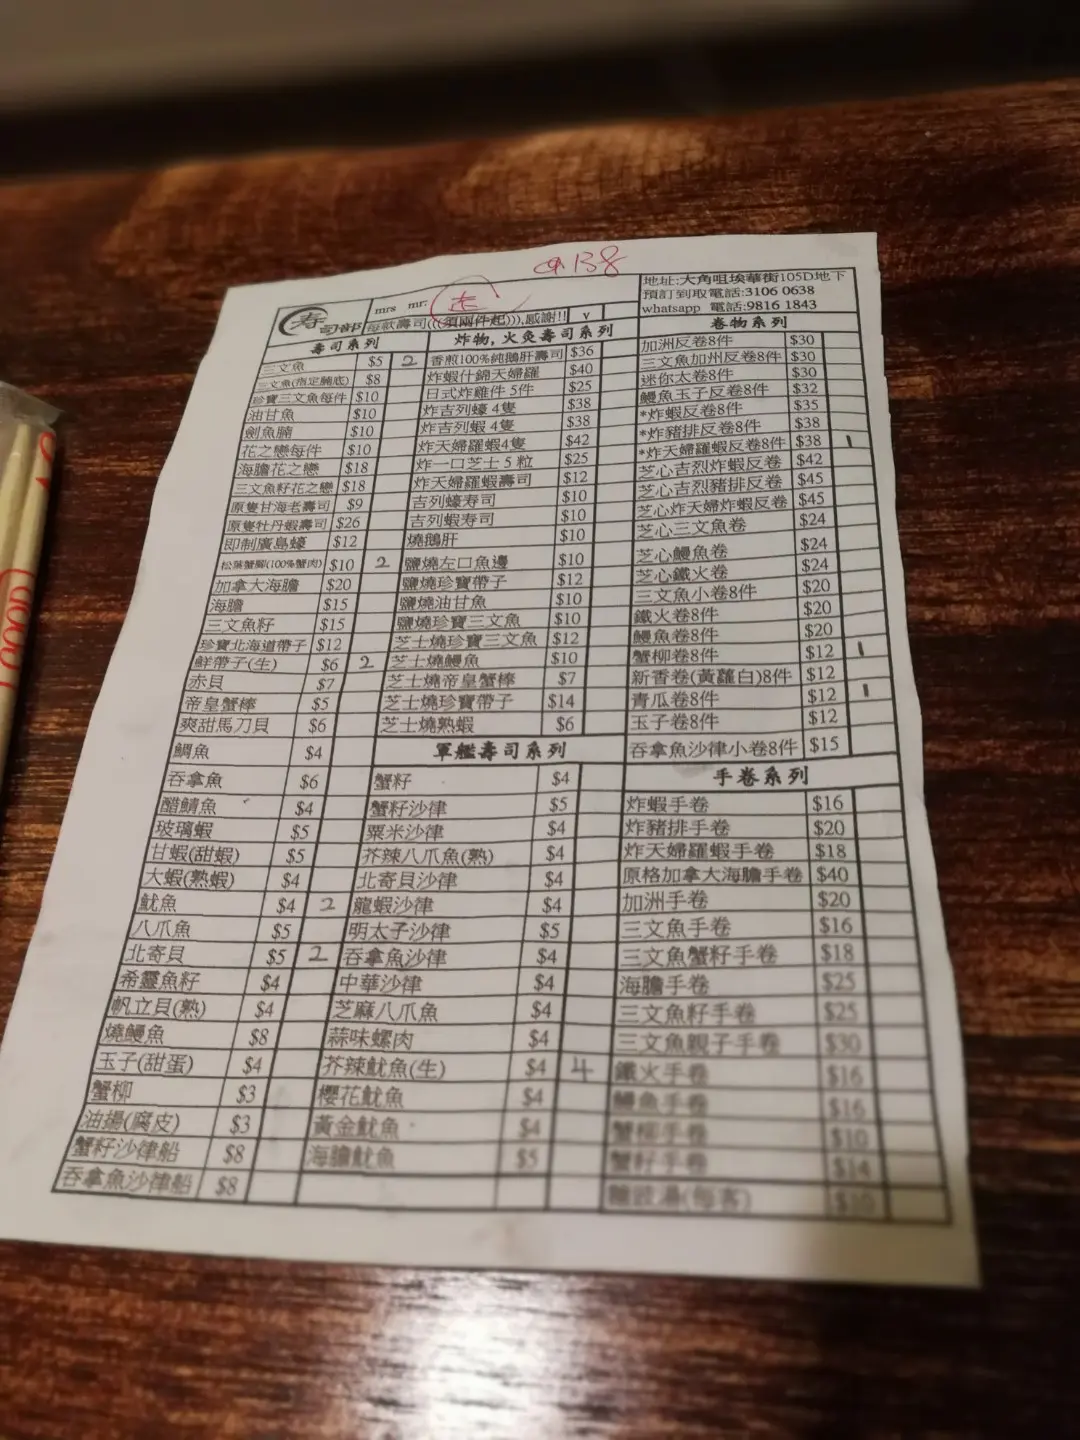 138
寿司部
mrs mr. 走
每款壽司(((須兩件起))),感謝!! v
地址:大角咀埃華街105D地下
預訂到取電話:3106 0638
whatsapp 電話:9816 1843
壽司系列
三文魚 $5 2
三文魚(指定腩底) $8
珍寶三文魚每件 $10
油甘魚 $10
劍魚腩 $10
花之戀每件 $10
海膽花之戀 $18
三文魚籽花之戀 $18
原隻甘海老壽司 $9
原隻牡丹蝦壽司 $26
即制廣島蠔 $12
松葉蟹腳(100%蟹肉) $10 2
加拿大海膽 $20
海膽 $15
三文魚籽 $15
珍寶北海道帶子 $12
鮮帶子(生) $6 2
赤貝 $7
帝皇蟹棒 $5
爽甜馬刀貝 $6
鯛魚 $4
吞拿魚 $6
醋鯖魚 $4
玻璃蝦 $5
甘蝦(甜蝦) $5
大蝦(熟蝦) $4
魷魚 $4 2
八爪魚 $5
北寄貝 $5 2
希靈魚籽 $4
帆立貝(熟) $4
燒鰻魚 $8
玉子(甜蛋) $4
蟹柳 $3
油揚(腐皮) $3
蟹籽沙律船 $8
吞拿魚沙律船 $8
炸物, 火灸壽司系列
香煎100%純鵝肝壽司 $36
炸蝦什錦天婦羅 $40
日式炸雞件 5件 $25
炸吉列蠔 4隻 $38
炸吉列蝦 4隻 $38
炸天婦羅蝦4隻 $42
炸一口芝士 5 粒 $25
炸天婦羅蝦壽司 $12
吉列蠔寿司 $10
吉列蝦寿司 $10
燒鵝肝 $10
鹽燒左口魚邊 $10
鹽燒珍寶帶子 $12
鹽燒油甘魚 $10
鹽燒珍寶三文魚 $10
芝士燒珍寶三文魚 $12
芝士燒鰻魚 $10
芝士燒帝皇蟹棒 $7
芝士燒珍寶帶子 $14
芝士燒熟蝦 $6
軍艦壽司系列
蟹籽 $4
蟹籽沙律 $5
粟米沙律 $4
芥辣八爪魚(熟) $4
北寄貝沙律 $4
龍蝦沙律 $4
明太子沙律 $5
吞拿魚沙律 $4
中華沙律 $4
芝麻八爪魚 $4
蒜味螺肉 $4
芥辣魷魚(生) $4 4
櫻花魷魚 $4
黃金魷魚 $4
海膽魷魚 $5
卷物系列
加洲反卷8件 $30
三文魚加州反卷8件 $30
迷你太卷8件 $30
鰻魚玉子反卷8件 $32
*炸蝦反卷8件 $35
*炸豬排反卷8件 $38
*炸天婦羅蝦反卷8件 $38 1
芝心吉烈炸蝦反卷 $42
芝心吉烈豬排反卷 $45
芝心炸天婦炸蝦反卷 $45
芝心三文魚卷 $24
芝心鰻魚卷 $24
芝心鐵火卷 $24
三文魚小卷8件 $20
鐵火卷8件 $20
鰻魚卷8件 $20
蟹柳卷8件 $12 1
新香卷(黃蘿白)8件 $12
青瓜卷8件 $12 1
玉子卷8件 $12
吞拿魚沙律小卷8件 $15
手卷系列
炸蝦手卷 $16
炸豬排手卷 $20
炸天婦羅蝦手卷 $18
原格加拿大海膽手卷 $40
加洲手卷 $20
三文魚手卷 $16
三文魚蟹籽手卷 $18
海膽手卷 $25
三文魚籽手卷 $25
三文魚親子手卷 $30
鐵火手卷 $16
鰻魚手卷 $16
蟹柳手卷 $10
蟹籽手卷 $14
(每客) $10